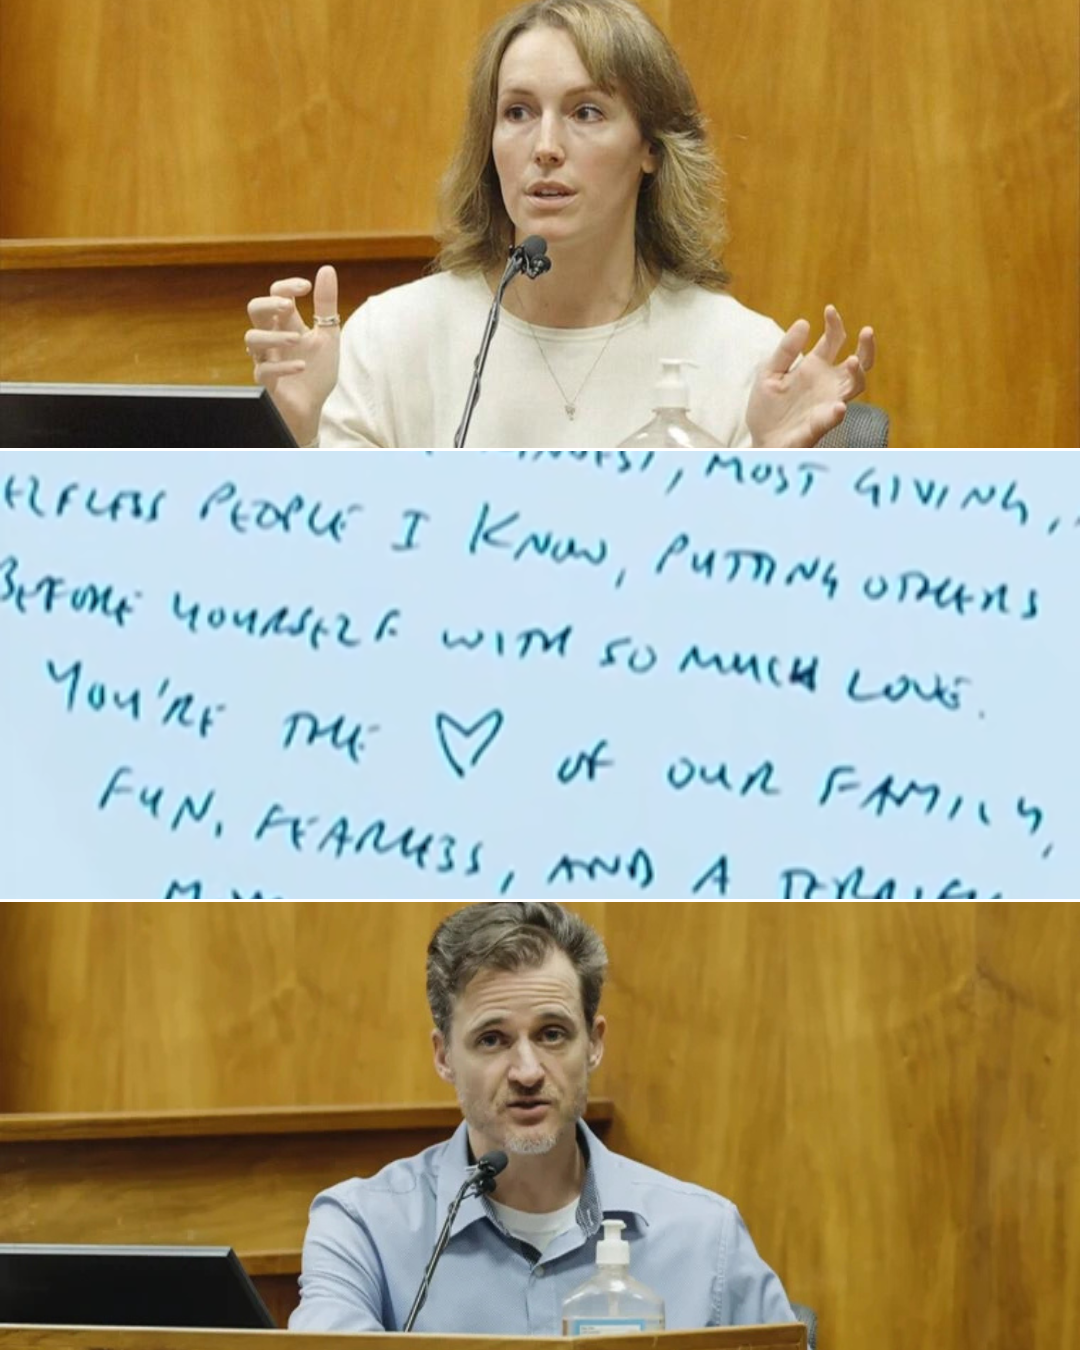 MOST GIVING,
PEOPLE I KNOW, PUTTING OTHERS
BEFORE YOURSELF WITH SO MUCH LOVE.
YOU'RE THE ♡ OF OUR FAMILY,
FUN, FEARLESS, AND A